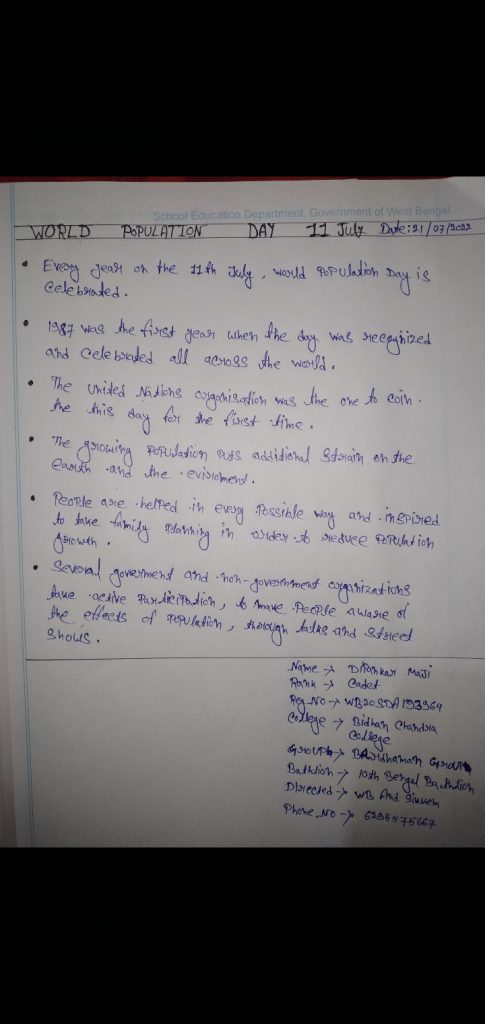 School Education Department, Government of West Bengal
WORLD POPULATION DAY 11 July Date:21/07/2022
• Every year on the 11th July, world Population Day is
celebrated.
• 1987 was the first year when the day was recognized
and celebrated all across the world.
• The United Nations organisation was the one to coin
the this day for the first time.
• The growing population puts additional strain on the
earth and the eviroment.
• People are helped in every Possible way and inspired
to take family planning in order to reduce Population
growth.
• Several goverment and non-government organizations
take active Participation, to make People aware of
the effects of Population, through talks and street
Shows.
Name → Dipankar Maji
Rank → Cadet
Reg No → WB20SDA193364
College → Bidhan Chandra
College
Group → Bardhaman Group
Bathlion → 10th Bengal Bathlion
Directed → WB And Sikkem
Phone No → 6295575667